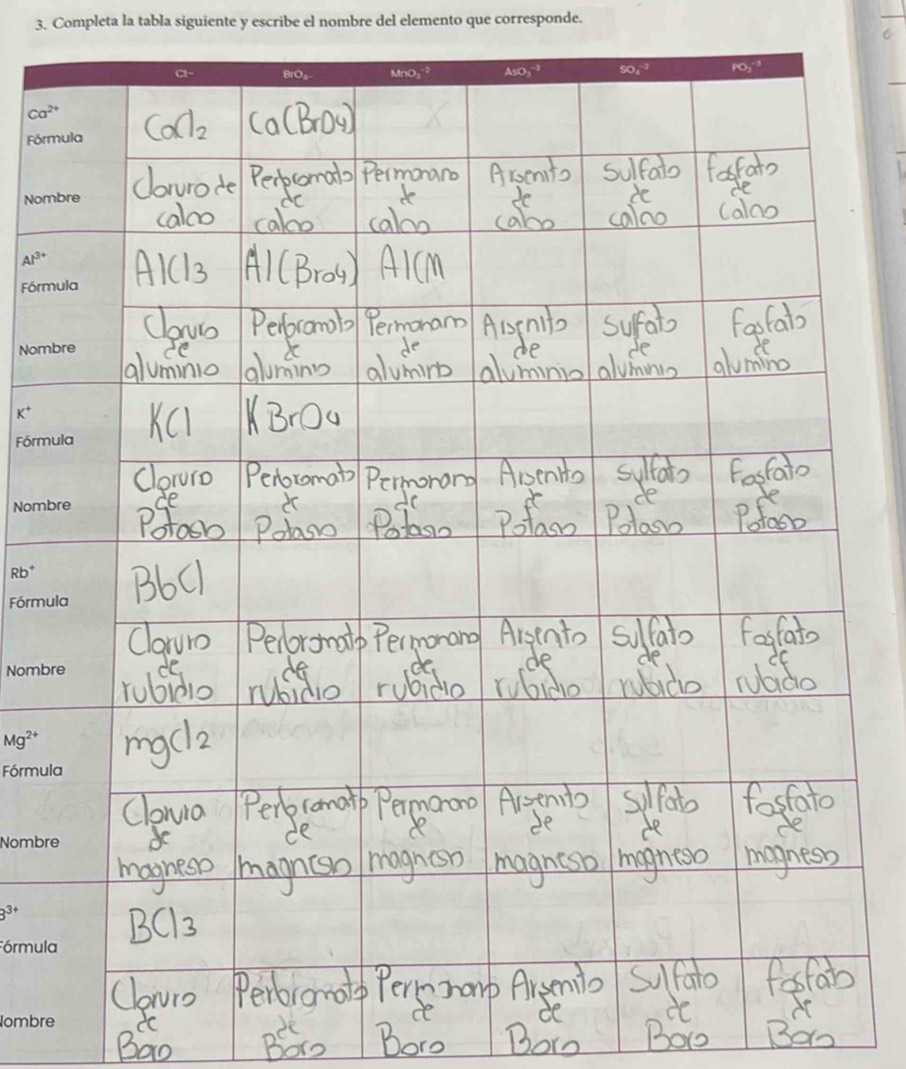 3. Completa la tabla siguiente y escribe el nombre del elemento que corresponde.
Cl- BrO₄- MnO₃⁻² AsO₃⁻³ SO₄⁻² PO₃⁻³
Ca²⁺
Fórmula
CaCl2 Ca(BrO4)
Nombre
Cloruro de Perbromato Permanano Arsenito sulfato fosfato
de de de de de
calcio calcio calcio calcio calcio calcio
Al³⁺
Fórmula
AlCl3 Al(BrO4) AlCM
Nombre
Cloruro Perbromato Permanam Arsenito sulfato Fosfato
de de de de de de
aluminio aluminio aluminio aluminio aluminio aluminio
K⁺
Fórmula
KCl KBrO4
Nombre
Cloruro Perbromato Permonano Arsenito sulfato Fosfato
de de de de de de
Potasio Potasio Potasio Potasio Potasio Potasio
Rb⁺
Fórmula
BbCl
Nombre
Cloruro Perbromato Permanano Arsenito sulfato Fosfato
de de de de de de
rubidio rubidio rubidio rubidio rubidio rubidio
Mg²⁺
Fórmula
mgCl2
Nombre
Cloruro Perbromato Permanano Arsenito sulfato fosfato
de de de de de de
magnesio magnesio magnesio magnesio magnesio magnesio
B³⁺
Fórmula
BCl3
Nombre
Cloruro Perbromato Permanano Arsenito Sulfato fosfato
de de de de de de
Boro Boro Boro Boro Boro Boro